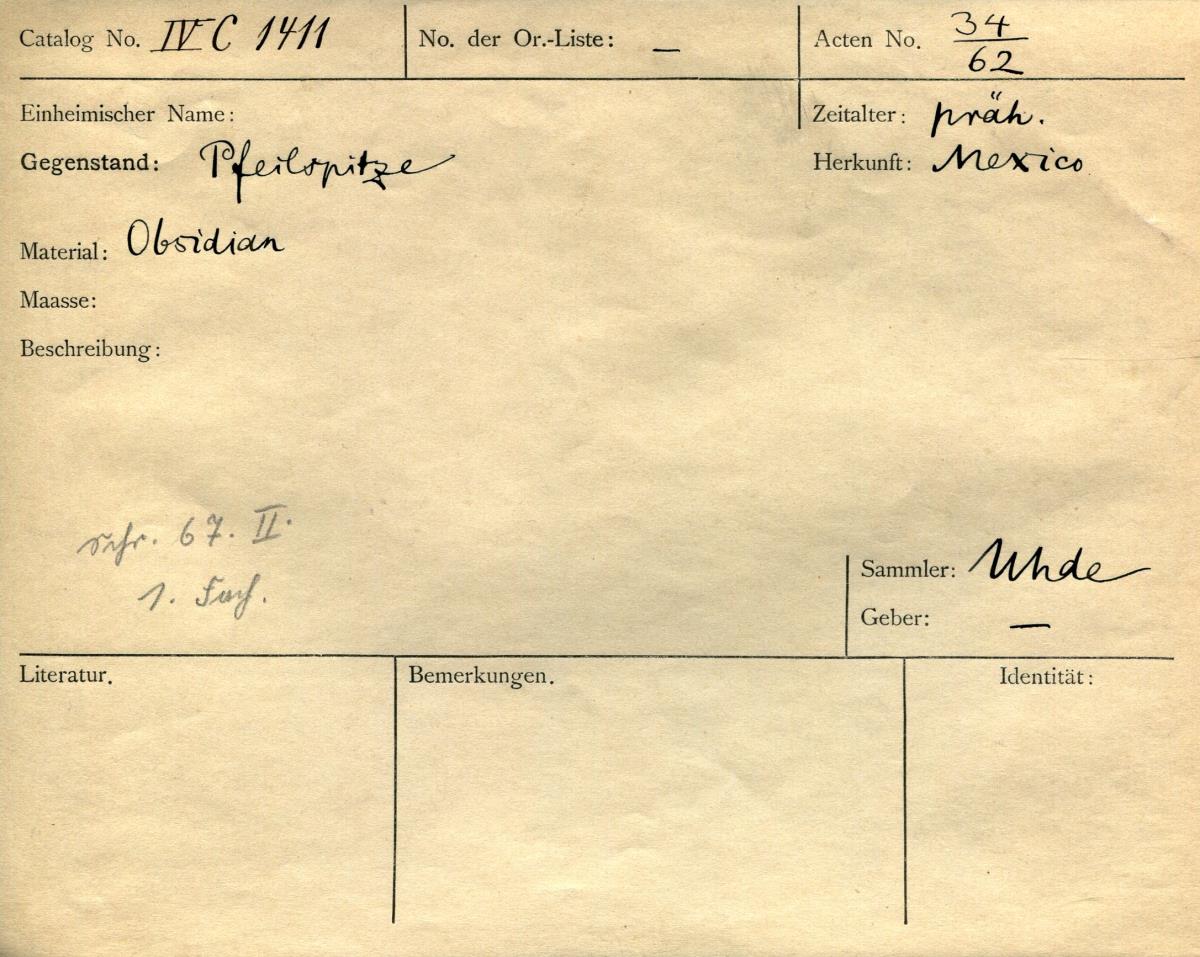 Catalog No. IV C 1411
No. der Or.-Liste: —
Acten No. 34/62
Einheimischer Name:
Zeitalter: präh.
Gegenstand: Pfeilspitze
Herkunft: Mexico
Material: Obsidian
Maasse:
Beschreibung:
Schr. 67. II.
1. Fach.
Sammler: Uhde
Geber: —
Literatur.
Bemerkungen.
Identität: